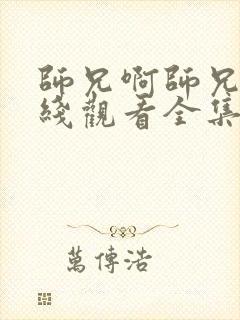 師兄啊師兄
綫觀看全集
萬傳浩